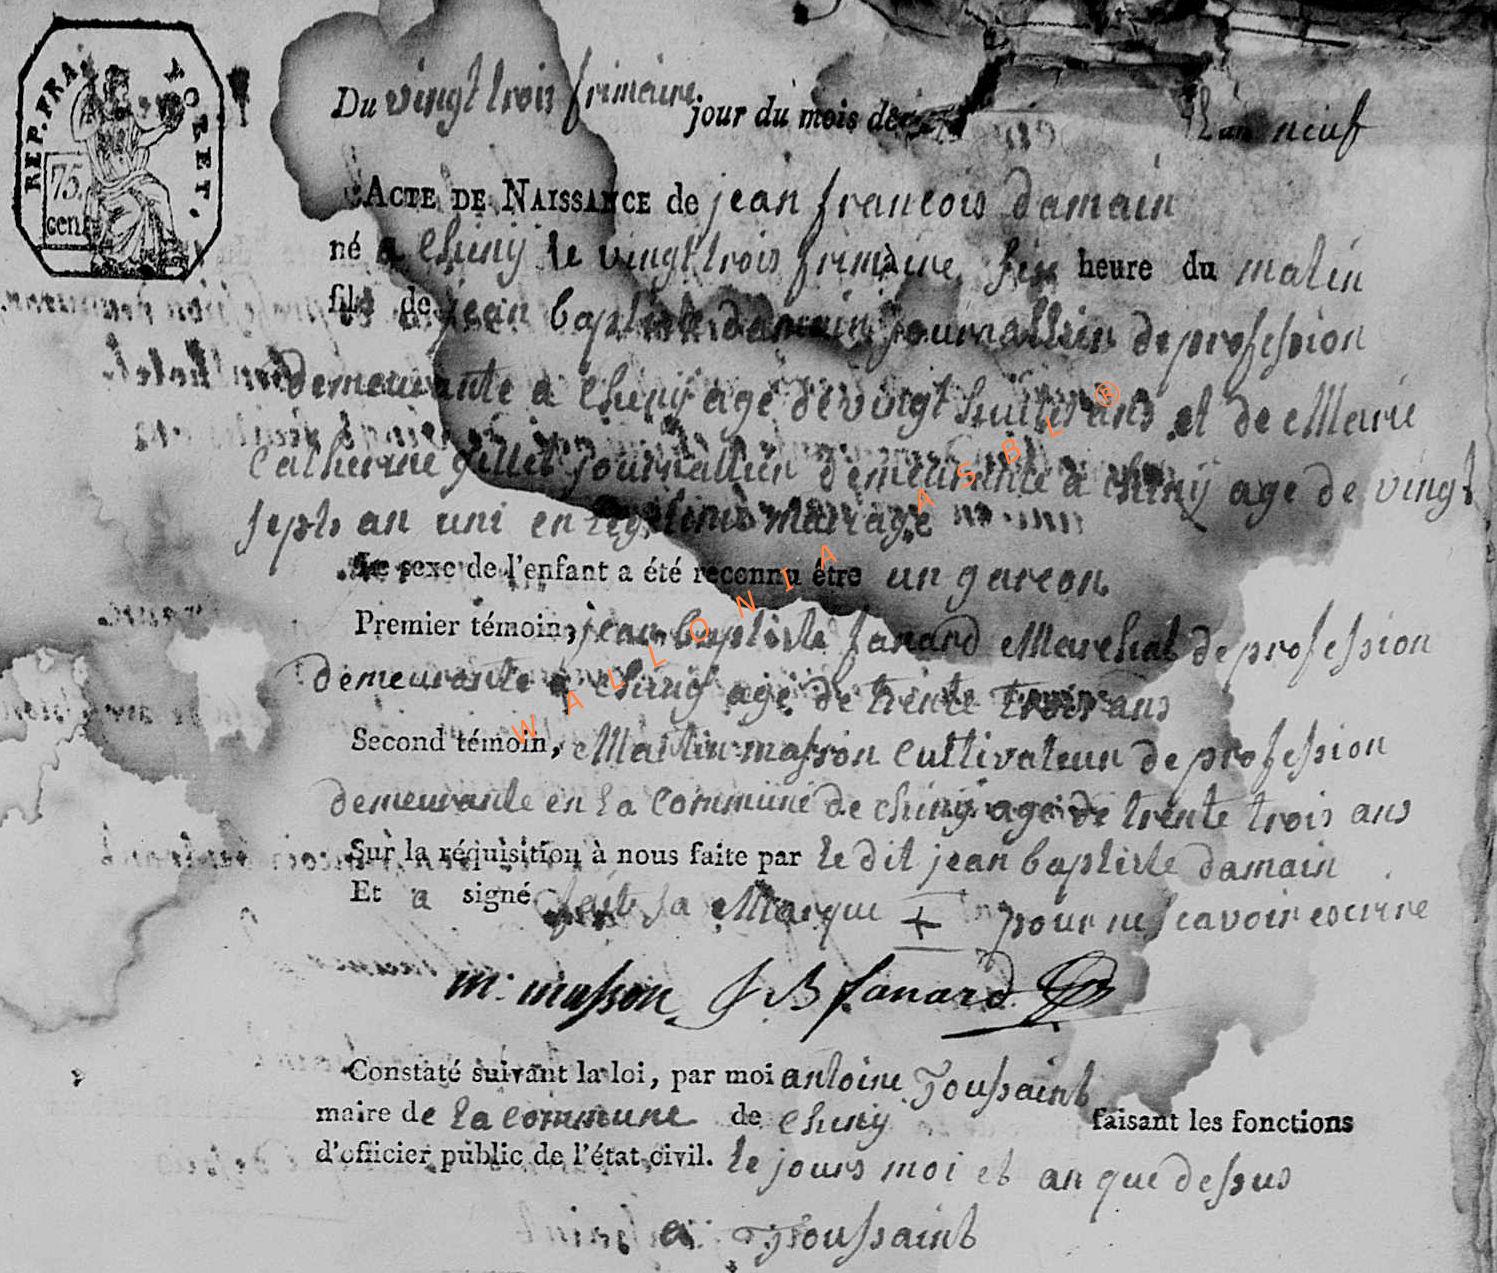 REP. FRA.
75.
cen.
Du vingt trois frimaire jour du mois de L'an neuf
ACTE DE NAISSANCE de jean francois damain
né a Chiny le vingt trois frimaire six heure du matin
fils de jean baptiste damain journallier de profession
demeurante a Chiny agé de vingt huit ans et de Marie
Catherine gillet journallier demeurante a chiny age de vingt
sept an uni en legitime mariage
Le sexe de l'enfant a été reconnu être un garcon.
Premier témoin, jean baptiste fanard Marchal de profession
demeurante a Chiny agé de trente trois ans
Second témoin, Martin masson Cultivateur de profession
demeurante en La Commune de chiny agé de trente trois ans
Sur la réquisition à nous faite par le dit jean baptiste damain
Et a signé fait sa Marque + pour ne scavoir escrire
m. masson J B fanard
Constaté suivant la loi, par moi antoine Toussaint
maire de La Commune de Chiny faisant les fonctions
d'officier public de l'état civil. le jours moi et an que dessus
a Toussaint
WALLONIA ASBL ®